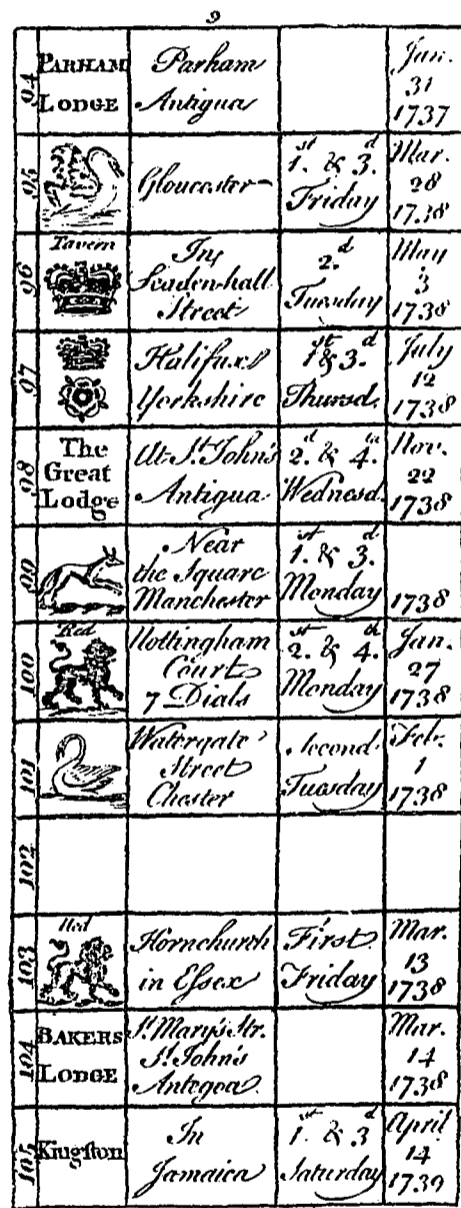 9
94 PARHAM LODGE Parham Antigua Jan. 31 1737
95 Gloucester 1.st & 3.d Friday Mar. 28 1738
96 Tavern In Leaden-hall Street 2.d Tuesday May 3 1738
97 Halifax Yorkshire 1st & 3.d Thursd. July 12 1738
98 The Great Lodge At St. John's Antigua 2.d & 4.th Wednesd. Nov. 22 1738
99 Near the Square Manchester 1.st & 3.d Monday 1738
100 Red Nottingham Court 7 Dials 2.st & 4.th Monday Jan. 27 1738
101 Watergate Street Chester Second Tuesday Feb. 1 1738
102
103 Red Hornchurch in Essex First Friday Mar. 13 1738
104 BAKERS LODGE St. Mary's Str. St. John's Antegoa. Mar. 14 1738
105 Kingston In Jamaica 1.st & 3.d Saturday April 14 1739